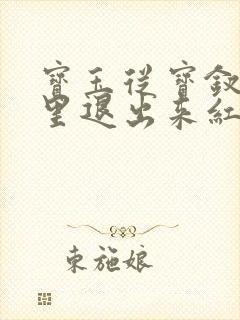 寶玉從寶釵
里退出来紅
東施娘